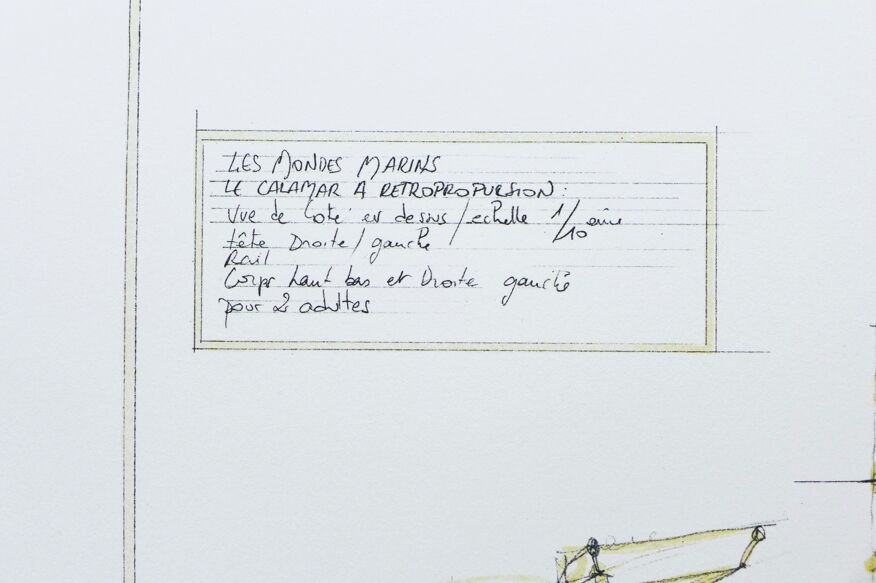 LES MONDES MARINS
LE CALAMAR A RETROPROPULSION :
Vue de Coté et dessus / echelle 1/10 eme
tête Droite / gauche
Rail
Corps haut bas et Droite gauche
pour 2 adultes